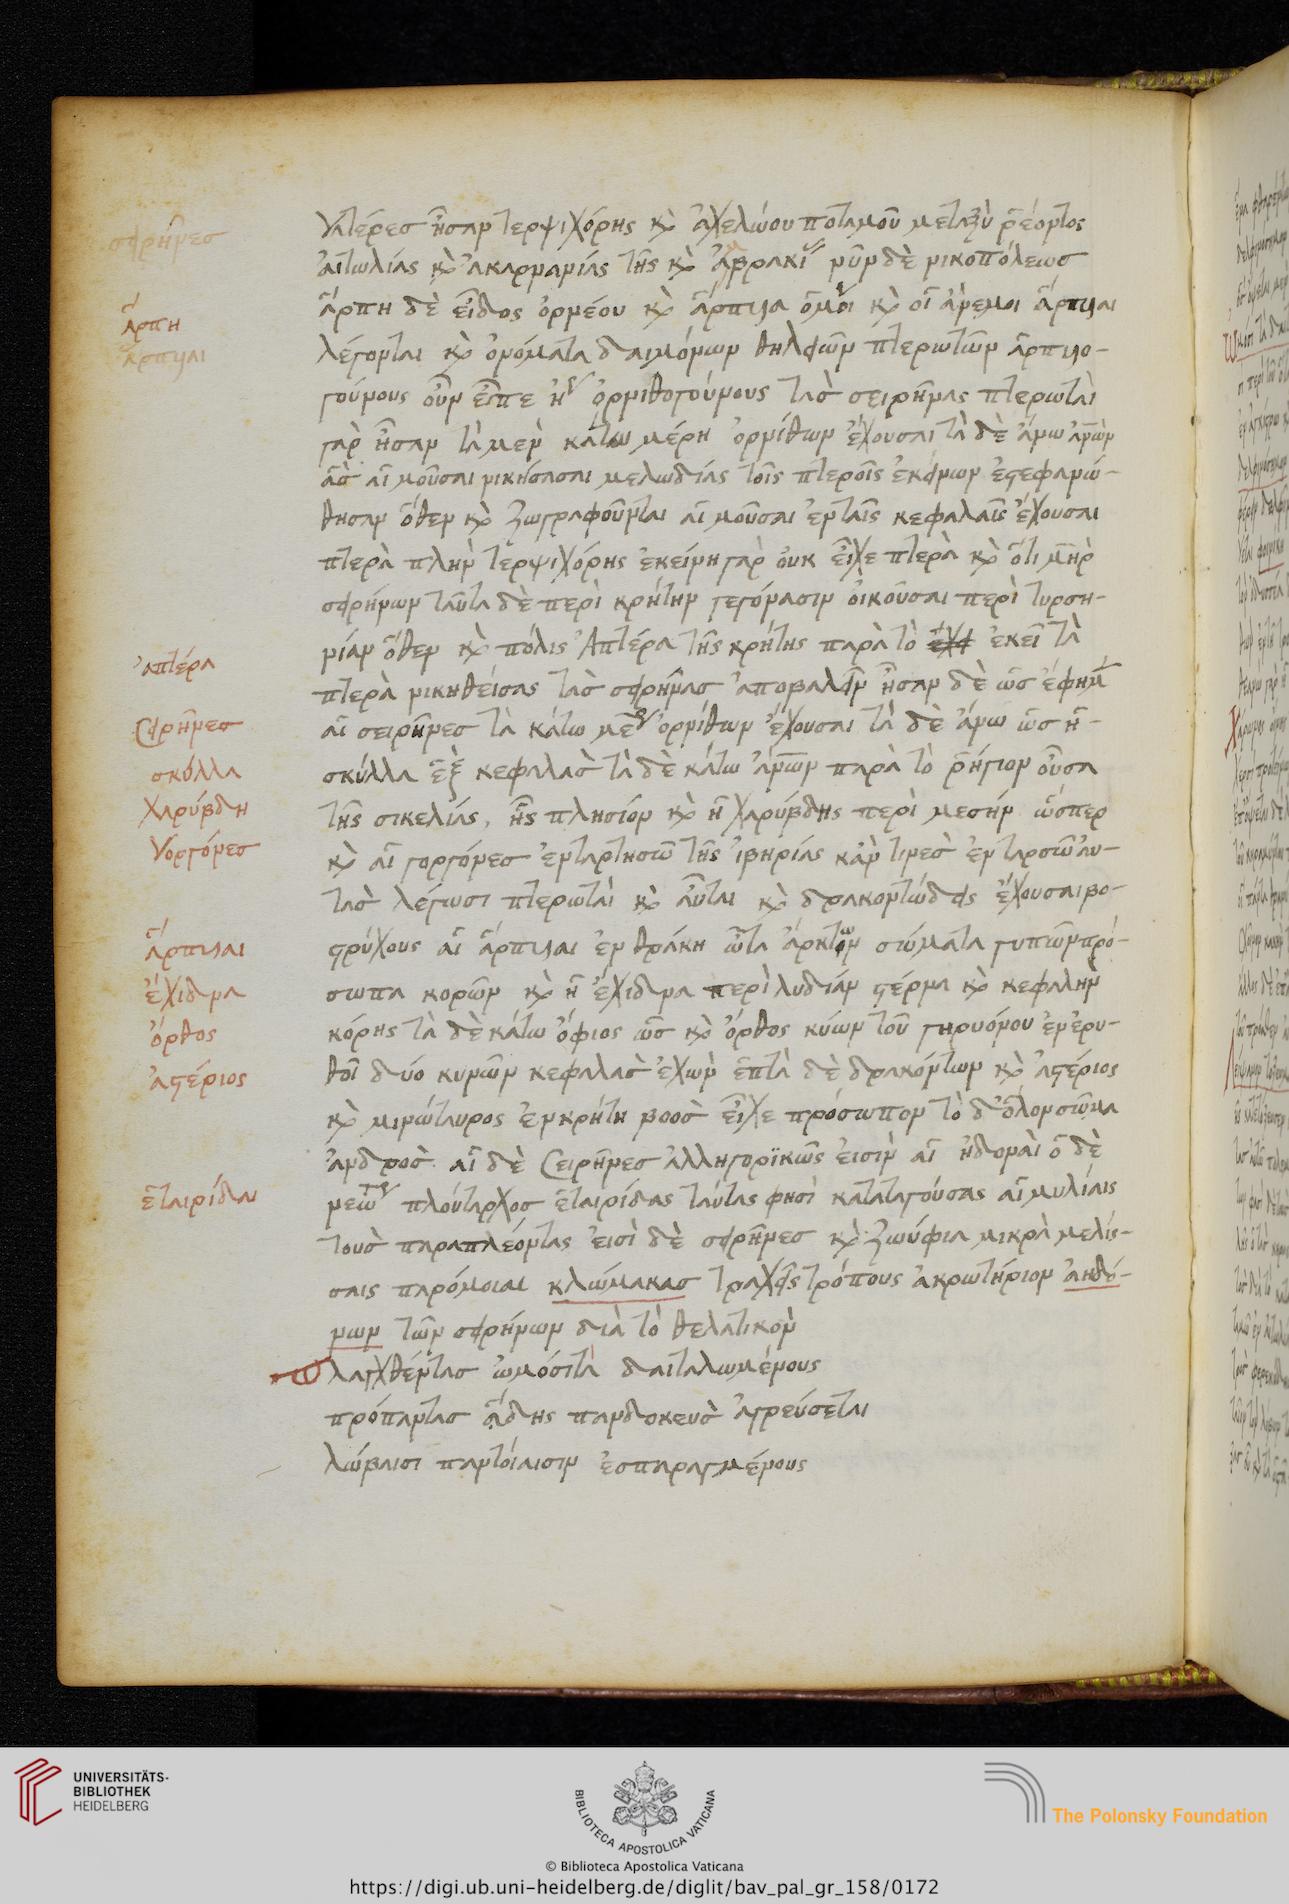 σειρῆνες
θυγατέρες ἦσαν τερψιχόρης κ̀ ἀχελώου ποταμοῦ μεταξὺ ῥέοντος
αἰτωλίας κ̀ ἀκαρνανίας τῆς κ̀ ἀβρακι νῦν δὲ νικοπόλεωσ
ἅρπη
ἅρπη δὲ εἶδος ὀρνέου κ̀ ἅρπυια ὅμοι κ̀ οἱ ἄνεμοι ἅρπυιαι
ἅρπυιαι
λέγονται κ̀ ὀνόματα δαιμόνων θηλειῶν πτερωτῶν ἁρπυιο-
γούνους οὖν εἶπε ἢ ὀρνιθογούνους τὰσ σειρῆνας πτερωταὶ
γὰρ ἦσαν τὰ μεν κάτω μέρη ὀρνίθων ἔχουσαι τὰ δὲ ἄνω ἀνῶν
ἃσ αἱ μοῦσαι νικήσασαι μελωδίας τοῖς πτεροῖς ἐκείνων ἐστεφανώ-
θησαν ὅθεν κ̀ ζωγραφοῦνται αἱ μοῦσαι ἐν ταῖς κεφαλαῖς ἔχουσαι
πτερὰ πλὴν τερψιχόρης ἐκείνη γὰρ οὐκ εἶχε πτερὰ κ̀ ὅτι μῆηρ
σειρήνων ταῦτα δὲ περὶ κρήτην γεγόνασιν οἰκοῦσαι περὶ τυρση-
νίαν ὅθεν κ̀ πόλις Ἀπτέρα τῆς κρήτης παρὰ τὸ ἐκεῖ τὰ
ἀπτέρα
πτερὰ νικηθείσας τὰσ σειρῆνασ ἀποβαλεῖν ἦσαν δὲ ὡσ ἔφημ
Σειρῆνεσ
αἱ σειρῆνεσ τὰ κάτω μὲν ὀρνίθων ἔχουσαι τὰ δὲ ἄνω ὡσ ἡ-
σκύλλα
σκύλλα ἓξ κεφαλὰσ τὰ δὲ κάτω ἀνῶν παρὰ τὸ ῥήγιον οὖσα
χαρύβδη
τῆς σικελίας, ἧς πλησίον κ̀ ἡ χαρύβδης περὶ μεσήν ὥσπερ
Γοργόνεσ
κ̀ αἱ γοργόνεσ ἐν ταρτησῶ τῆς ἰβηρίας κἀν τινεσ ἐν ταρσῶ αυ-
τὰσ λέγωσι πτερωταὶ κ̀ αὗται κ̀ δρακοντώδεις ἔχουσαι βο-
ἅρπυιαι
στρύχους αἱ ἅρπυιαι ἐν θράκη ὦτα ἄρκτων σώματα γυπῶν πρό-
ἔχιδνα
σωπα κορῶν κ̀ ἡ ἔχιδνα περὶ λυδιάν στέρνα κ̀ κεφαλὴν
ὄρθος
κόρης τὰ δὲ κάτω ὄφιος ὡσ κ̀ ὄρθος κύων τοῦ γηρυόνου ἐν ἐρυ-
ἀστέριος
θεῖ δύο κυνῶν κεφαλὰσ ἔχων ἑπτὰ δὲ δρακόντων κ̀ ἀστέριος
κ̀ μινώταυρος ἐν κρήτη βοοσ εἶχε πρόσωπον τὸ δ' ὅλον σῶμα
ἀνδροσ αἱ δὲ Σειρῆνεσ ἀλληγορϊκῶς εἰσὶν αἱ ἡδοναὶ ὁ δὲ
ἑταιρίδαι
νεώτ πλούταρχοσ ἑταιρίδας ταύτας φησὶ κατατασούσας αἱμυλίαις
τουσ παραπλέοντας εἰσὶ δὲ σειρῆνεσ κ̀ ζωύφια μικρὰ μελίσ-
σαις παρόμοιαι κλώμακασ τραχεῖς τρόπους ἀκρωτήριον ἀηδό-
νων τῶν σειρήνων διὰ τὸ θελατικον
πλαγχθέντασ ὠμόσιτα δαιταλωμένους
πρόπαντασ ᾅδης πανδοκευσ ἀγρεύσεται
λώβαισι παντοίαισιν ἐσπαραγμένους
UNIVERSITÄTS-
BIBLIOTHEK
HEIDELBERG
BIBLIOTECA APOSTOLICA VATICANA
The Polonsky Foundation
© Biblioteca Apostolica Vaticana
https://digi.ub.uni-heidelberg.de/diglit/bav_pal_gr_158/0172